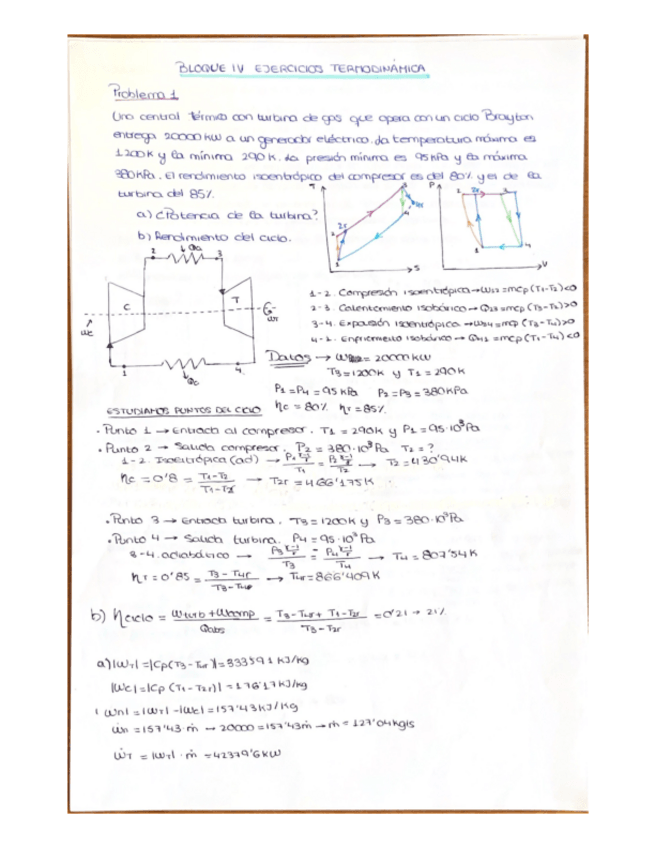 BLOQUE IV EJERCICIOS TERMODINÁMICA
Problema 1
Una central térmica con turbina de gas que opera con un ciclo Brayton
entrega 20000 kW a un generador eléctrico. La temperatura máxima es
1200K y la mínima 290K. La presión mínima es 95 kPa y la máxima
380kPa. El rendimiento isoentrópico del compresor es del 80% y es de la
turbina del 85%.
a) ¿Potencia de la turbina?
b) Rendimiento del ciclo.
T
S
P
V
C
T
1-2. Compresión isoentrópica → W12=mcp(T1-T2)<0
2-3. Calentamiento isobárico → Q23=mcp(T3-T2)>0
3-4. Expansión isoentrópica → W34=mcp(T3-T4)>0
4-1. Enfriamiento isobárico → Q41=mcp(T1-T4)<0
Datos → = 20000 kW
T3=1200K y T1=290K
P1=P4=95 kPa P2=P3=380KPa
ηc=80% ηT=85%
ESTUDIAMOS PUNTOS DEL CICLO
• Punto 1 → Entrada al compresor. T1=290K y P1=95·10³Pa
• Punto 2 → Salida compresor. P2=380·10³Pa T2=?
1-2. Isoentrópica (ad) → → T2=430'94K
ηc=0'8= T1-T2 / T1-T2r → T2r=466'175K
• Punto 3 → Entrada turbina. T3=1200K y P3=380·10³Pa
• Punto 4 → Salida turbina. P4=95·10³Pa
3-4. adiabático → → T4=807'54K
ηT=0'85= → T4r=866'409K
b) ηciclo= Wturb+Wcomp / Qabs = T3-T4r+T1-T2r / T3-T2r =0'21 → 21%
a) |WT|=|Cp(T3-T4r)|=333'591 kJ/kg
|Wc|=|Cp(T1-T2r)|=176'17 kJ/kg
|Wn|=|WT|-|Wc|=157'43 kJ/kg
Ẇn=157'43·ṁ → 20000=157'43ṁ → ṁ=127'04kg/s
ẆT=|WT|·ṁ=42379'6kW